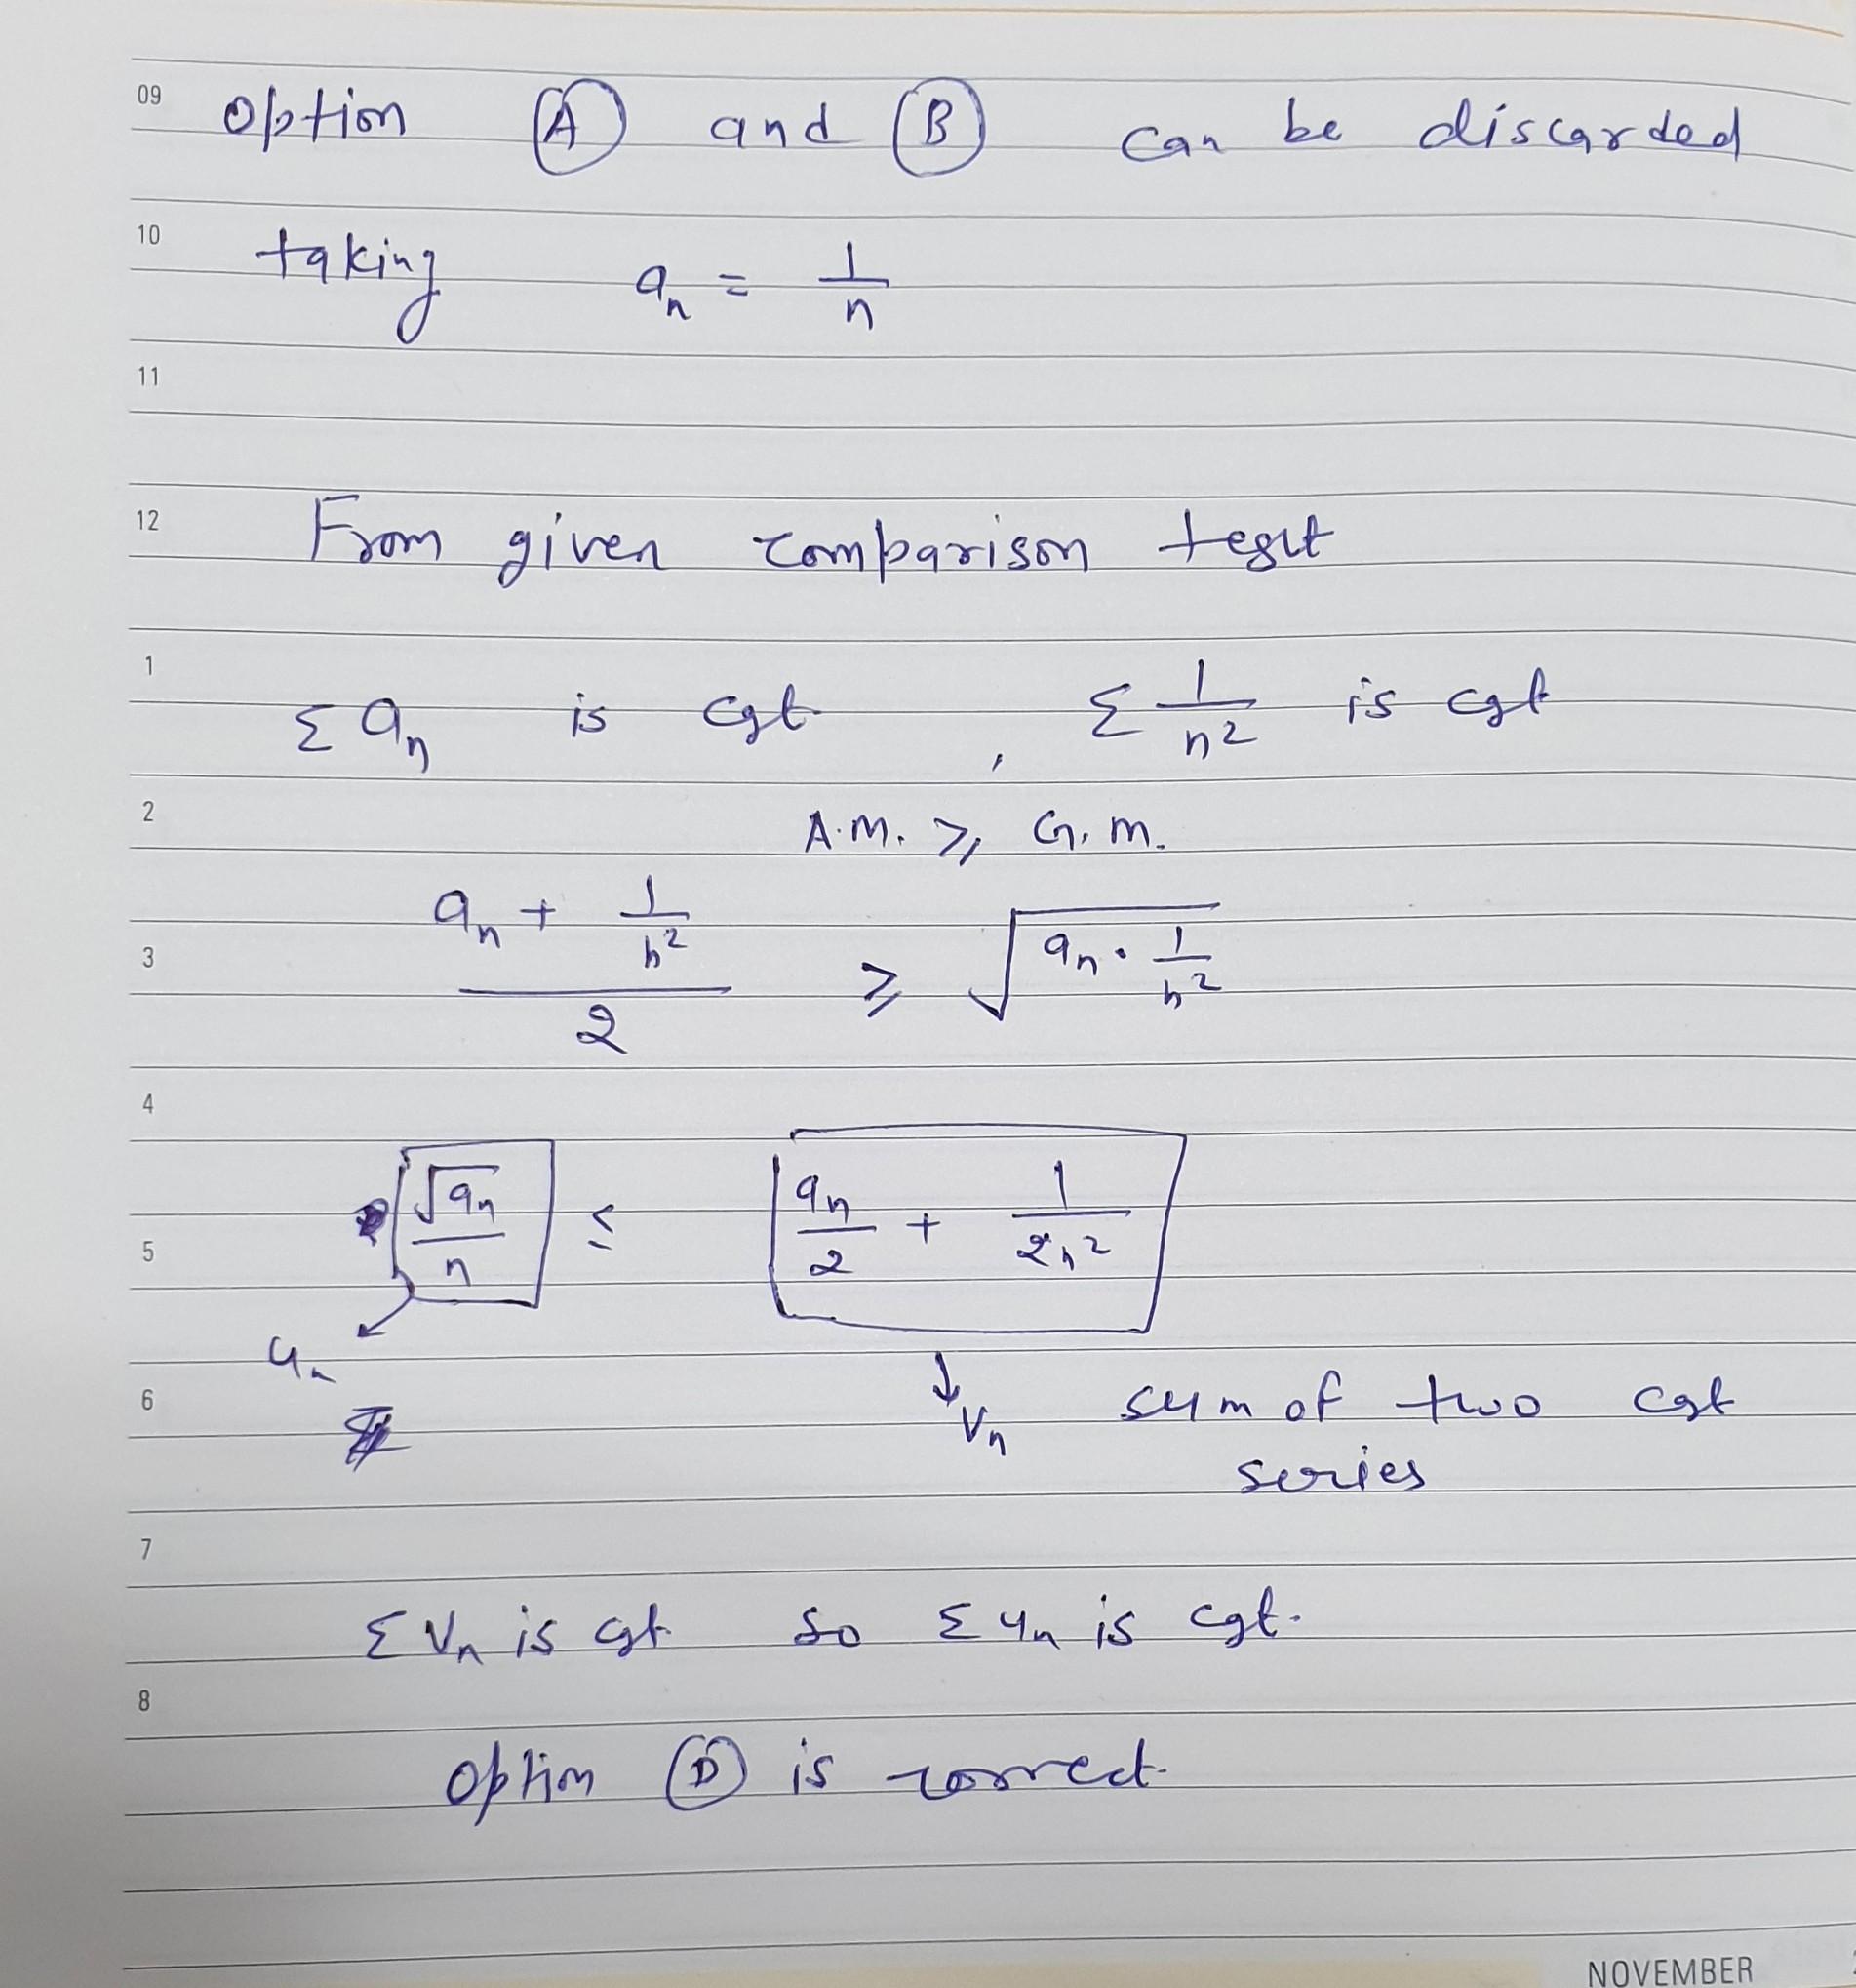 09 option (A) and (B) can be discarded
10 taking a_n = 1/n
11
12 From given comparison test
1 Σ a_n is cgt , Σ 1/n² is cgt
2 A.M. ≥ G.M.
3 (a_n + 1/n²)/2 ≥ √(a_n · 1/n²)
4
5 √a_n/n ≤ a_n/2 + 1/2n²
u_n
6 ↓ v_n sum of two cgt
series
7
Σ v_n is cgt so Σ u_n is cgt.
8
option (D) is correct.
NOVEMBER